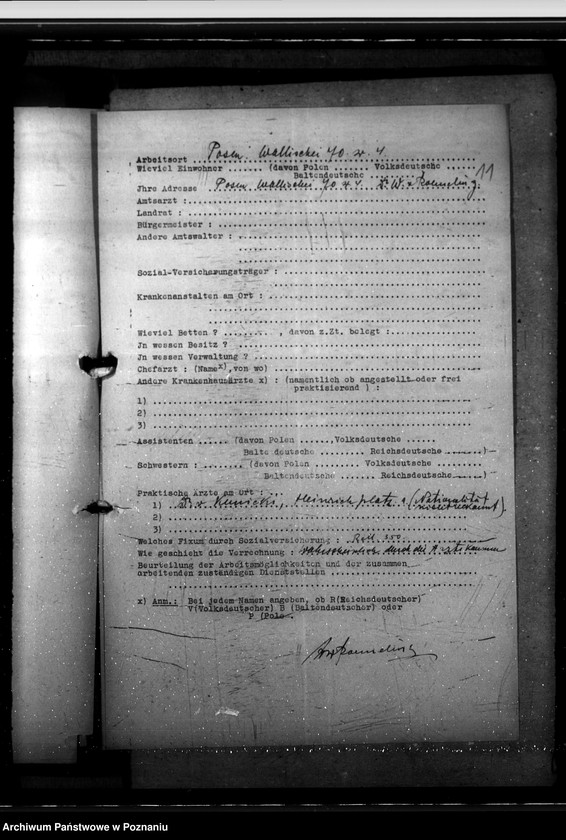 11
Arbeitsort Posen Wallischei 70 W. 4.
Wieviel Einwohner ....... (davon Polen ....... Volksdeutsche .....
Baltendeutsche
Jhre Adresse Posen Wallischei 70 W. 4.
Amtsarzt :
Landrat :
Bürgermeister :
Andere Amtswalter :
Sozial-Versicherungsträger :
Krankenanstalten am Ort :
Wieviel Betten ? ........., davon z.Zt. belegt :
Jn wessen Besitz ?
Jn wessen Verwaltung ?
Chefarzt : (Name x), von wo)
Andere Krankenhausärzte x) : (namentlich ob angestellt oder frei
praktisierend ) :
1)
2)
3)
Assistenten ...... (davon Polen ......, Volksdeutsche ......
Balte deutsche ........ Reichsdeutsche ......)
Schwestern : ........ (davon Polen ........ Volksdeutsche ........
Baltendeutsche ....... Reichsdeutsche ......)
Praktische Ärzte am Ort : ...
1) Heinrichplatz 1 (Nationalität
nicht bekannt).
2)
3)
Welches Fixum durch Sozialversicherung :
Wie geschieht die Verrechnung : wahrscheinlich durch die Ärztekammer
Beurteilung der Arbeitsmöglichkeiten und der zusammen
arbeitenden zuständigen Dienststellen
x) Anm.: Bei jedem Namen angeben, ob R(Reichsdeutscher)
V(Volksdeutscher) B (Baltendeutscher) oder
P (Pole .
Archiwum Państwowe w Poznaniu